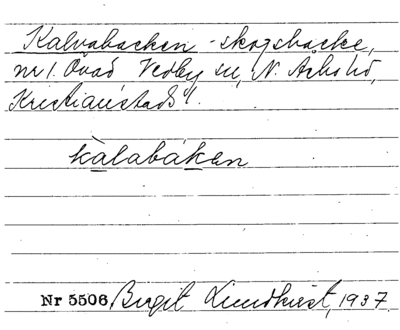 Kalvabacken - skogsbacke,
nr 1. Övad Vedby sn, N. Åsbo hd,
Kristianstads l.
kàlabáken
Nr 5506 Birgit Lundkvist, 1937.